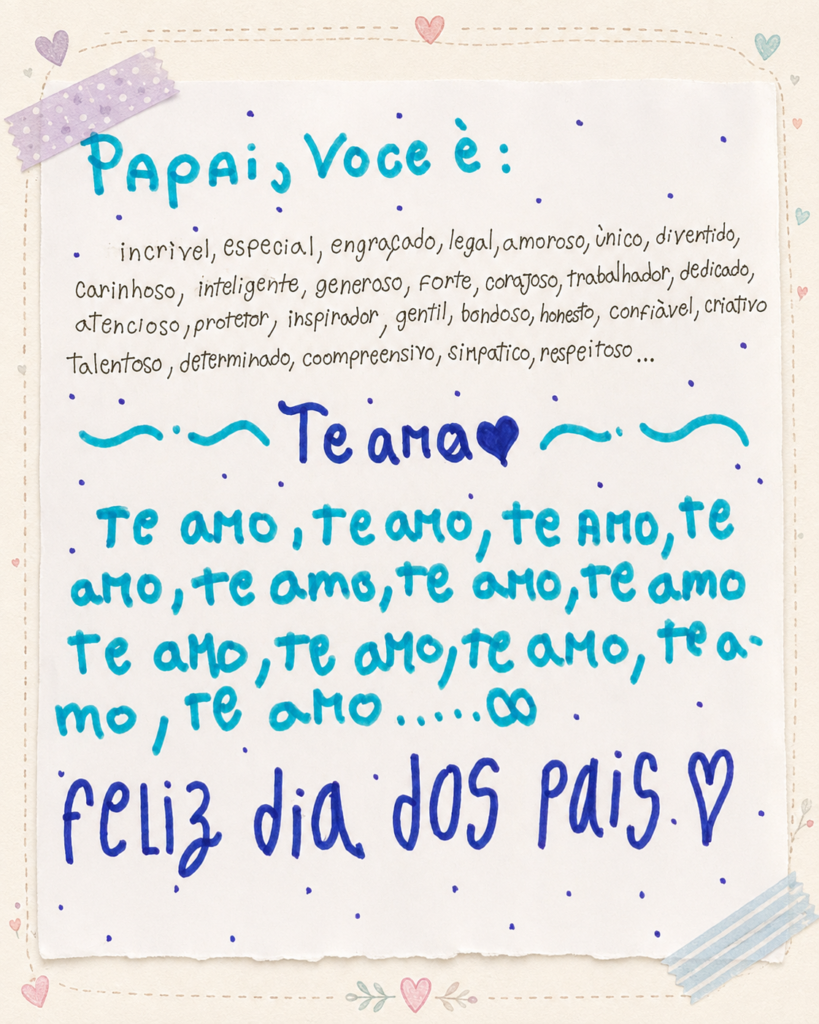 Papai, Voce è:
incrìvel, especial, engraçado, legal, amoroso, ùnico, divertido,
carinhoso, inteligente, generoso, forte, corajoso, trabalhador, dedicado,
atencioso, protetor, inspirador, gentil, bondoso, honesto, confiàvel, criativo
talentoso, determinado, coompreensivo, simpatico, respeitoso...
Te amo♥
Te amo, te amo, te amo, te
amo, te amo, te amo, te amo
te amo, te amo, te amo, te a-
mo, te amo.....∞
feliz dia dos pais.♡